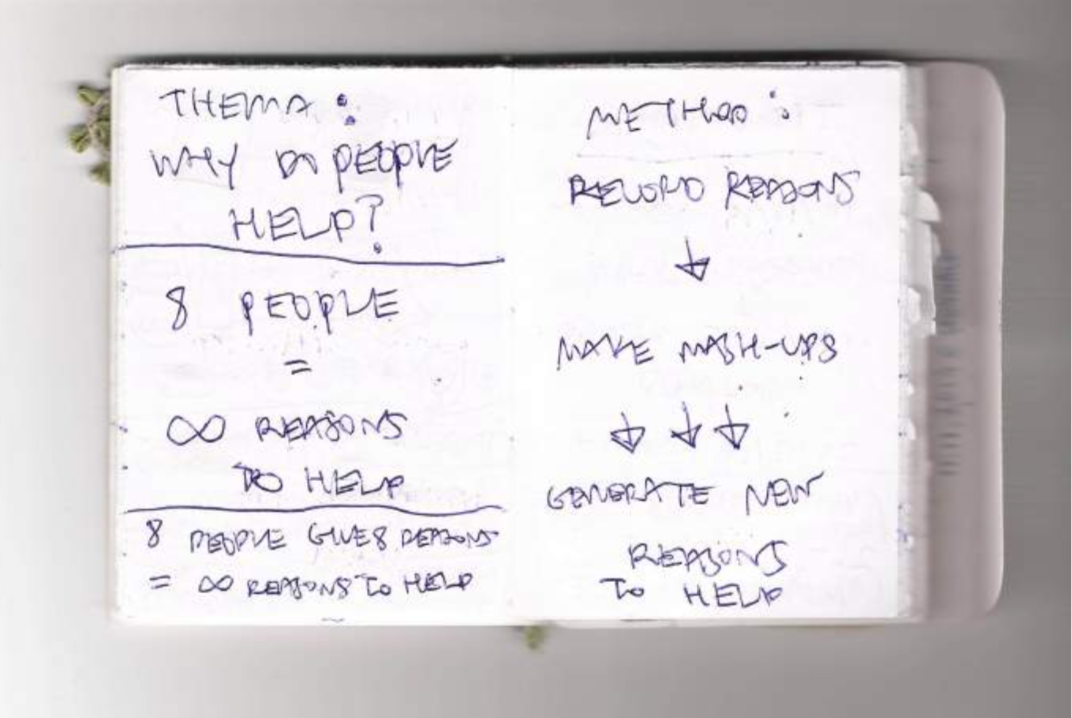 THEMA:
WHY DO PEOPLE
HELP?
8 PEOPLE
=
∞ REASONS
TO HELP
8 PEOPLE GIVE 8 REASONS
= ∞ REASONS TO HELP
METHOD:
RECORD REASONS
↓
MAKE MASH-UPS
↓ ↓ ↓
GENERATE NEW
REASONS
TO HELP